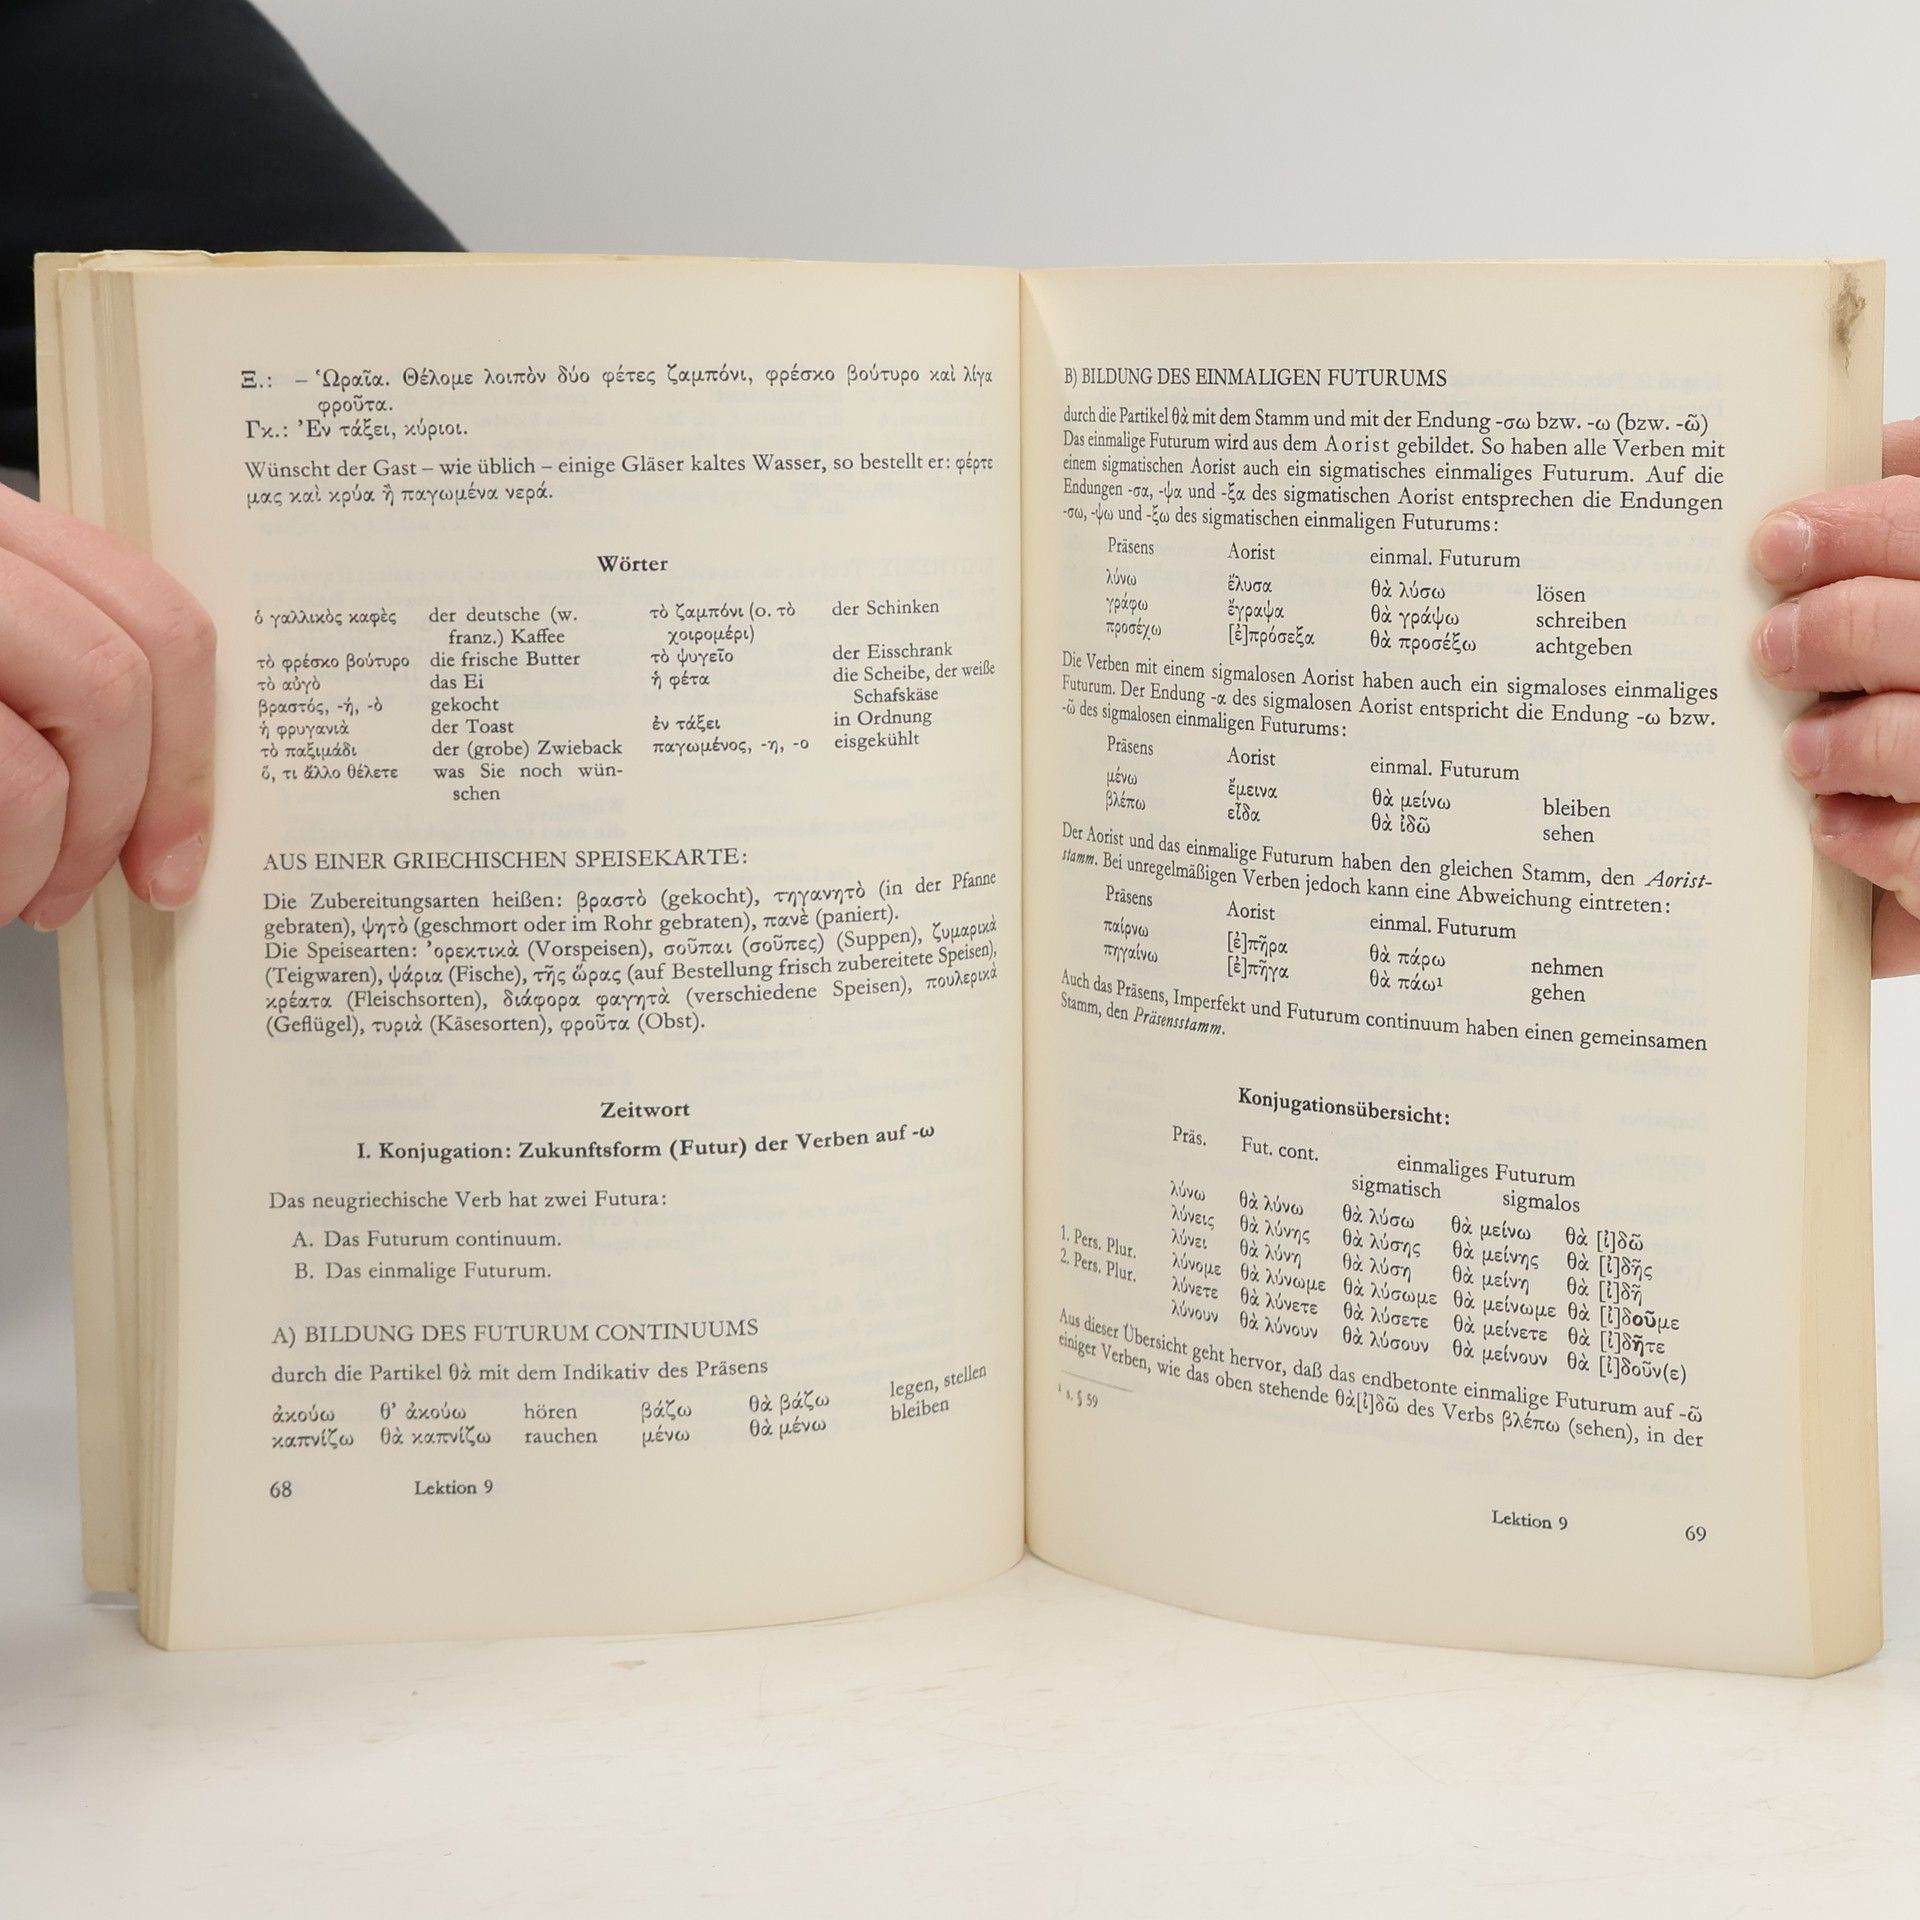 Ξ.: – Ὡραῖα. Θέλομε λοιπὸν δύο φέτες ζαμπόνι, φρέσκο βούτυρο καὶ λίγα
φροῦτα.
Γκ.: Ἐν τάξει, κύριοι.
Wünscht der Gast – wie üblich – einige Gläser kaltes Wasser, so bestellt er: φέρτε
μας καὶ κρύα ἢ παγωμένα νερά.
Wörter
ὁ γαλλικὸς καφὲς der deutsche (w.
franz.) Kaffee
τὸ φρέσκο βούτυρο die frische Butter
τὸ αὐγὸ das Ei
βραστός, -ή, -ὸ gekocht
ἡ φρυγανιὰ der Toast
τὸ παξιμάδι der (grobe) Zwieback
ὅ, τι ἄλλο θέλετε was Sie noch wün-
schen
τὸ ζαμπόνι (ο. τὸ der Schinken
χοιρομέρι)
τὸ ψυγεῖο der Eisschrank
ἡ φέτα die Scheibe, der weiße
Schafskäse
ἐν τάξει in Ordnung
παγωμένος, -η, -ο eisgekühlt
AUS EINER GRIECHISCHEN SPEISEKARTE:
Die Zubereitungsarten heißen: βραστὸ (gekocht), τηγανητὸ (in der Pfanne
gebraten), ψητὸ (geschmort oder im Rohr gebraten), πανὲ (paniert).
Die Speisearten: ὀρεκτικὰ (Vorspeisen), σοῦπαι (σοῦπες) (Suppen), ζυμαρικὰ
(Teigwaren), ψάρια (Fische), τῆς ὥρας (auf Bestellung frisch zubereitete Speisen),
κρέατα (Fleischsorten), διάφορα φαγητὰ (verschiedene Speisen), πουλερικὰ
(Geflügel), τυριὰ (Käsesorten), φροῦτα (Obst).
Zeitwort
I. Konjugation: Zukunftsform (Futur) der Verben auf -ω
Das neugriechische Verb hat zwei Futura:
A. Das Futurum continuum.
B. Das einmalige Futurum.
A) BILDUNG DES FUTURUM CONTINUUMS
durch die Partikel θὰ mit dem Indikativ des Präsens
ἀκούω θ’ ἀκούω hören βάζω θὰ βάζω legen, stellen
καπνίζω θὰ καπνίζω rauchen μένω θὰ μένω bleiben
68 Lektion 9
B) BILDUNG DES EINMALIGEN FUTURUMS
durch die Partikel θὰ mit dem Stamm und mit der Endung -σω bzw. -ω (bzw. -ῶ)
Das einmalige Futurum wird aus dem Aorist gebildet. So haben alle Verben mit
einem sigmatischen Aorist auch ein sigmatisches einmaliges Futurum. Auf die
Endungen -σα, -ψα und -ξα des sigmatischen Aorist entsprechen die Endungen
-σω, -ψω und -ξω des sigmatischen einmaligen Futurums:
Präsens Aorist einmal. Futurum
λύνω ἔλυσα θὰ λύσω lösen
γράφω ἔγραψα θὰ γράψω schreiben
προσέχω [ἐ]πρόσεξα θὰ προσέξω achtgeben
Die Verben mit einem sigmalosen Aorist haben auch ein sigmaloses einmaliges
Futurum. Der Endung -α des sigmalosen Aorist entspricht die Endung -ω bzw.
-ῶ des sigmalosen einmaligen Futurums:
Präsens Aorist einmal. Futurum
μένω ἔμεινα θὰ μείνω bleiben
βλέπω εἶδα θὰ ἰδῶ sehen
Der Aorist und das einmalige Futurum haben den gleichen Stamm, den Aorist-
stamm. Bei unregelmäßigen Verben jedoch kann eine Abweichung eintreten:
Präsens Aorist einmal. Futurum
παίρνω [ἐ]πῆρα θὰ πάρω nehmen
πηγαίνω [ἐ]πῆγα θὰ πάω¹ gehen
Auch das Präsens, Imperfekt und Futurum continuum haben einen gemeinsamen
Stamm, den Präsensstamm.
Konjugationsübersicht:
Präs. Fut. cont. einmaliges Futurum
sigmatisch sigmalos
λύνω θὰ λύνω θὰ λύσω θὰ μείνω θὰ [ἰ]δῶ
λύνεις θὰ λύνης θὰ λύσης θὰ μείνης θὰ [ἰ]δῆς
λύνει θὰ λύνη θὰ λύση θὰ μείνη θὰ [ἰ]δῆ
1. Pers. Plur. λύνομε θὰ λύνωμε θὰ λύσωμε θὰ μείνωμε θὰ [ἰ]δοῦμε
2. Pers. Plur. λύνετε θὰ λύνετε θὰ λύσετε θὰ μείνετε θὰ [ἰ]δῆτε
λύνουν θὰ λύνουν θὰ λύσουν θὰ μείνουν θὰ [ἰ]δοῦν(ε)
Aus dieser Übersicht geht hervor, daß das endbetonte einmalige Futurum auf -ῶ
einiger Verben, wie das oben stehende θὰ[ἰ]δῶ des Verbs βλέπω (sehen), in der
¹ s. § 59
Lektion 9 69